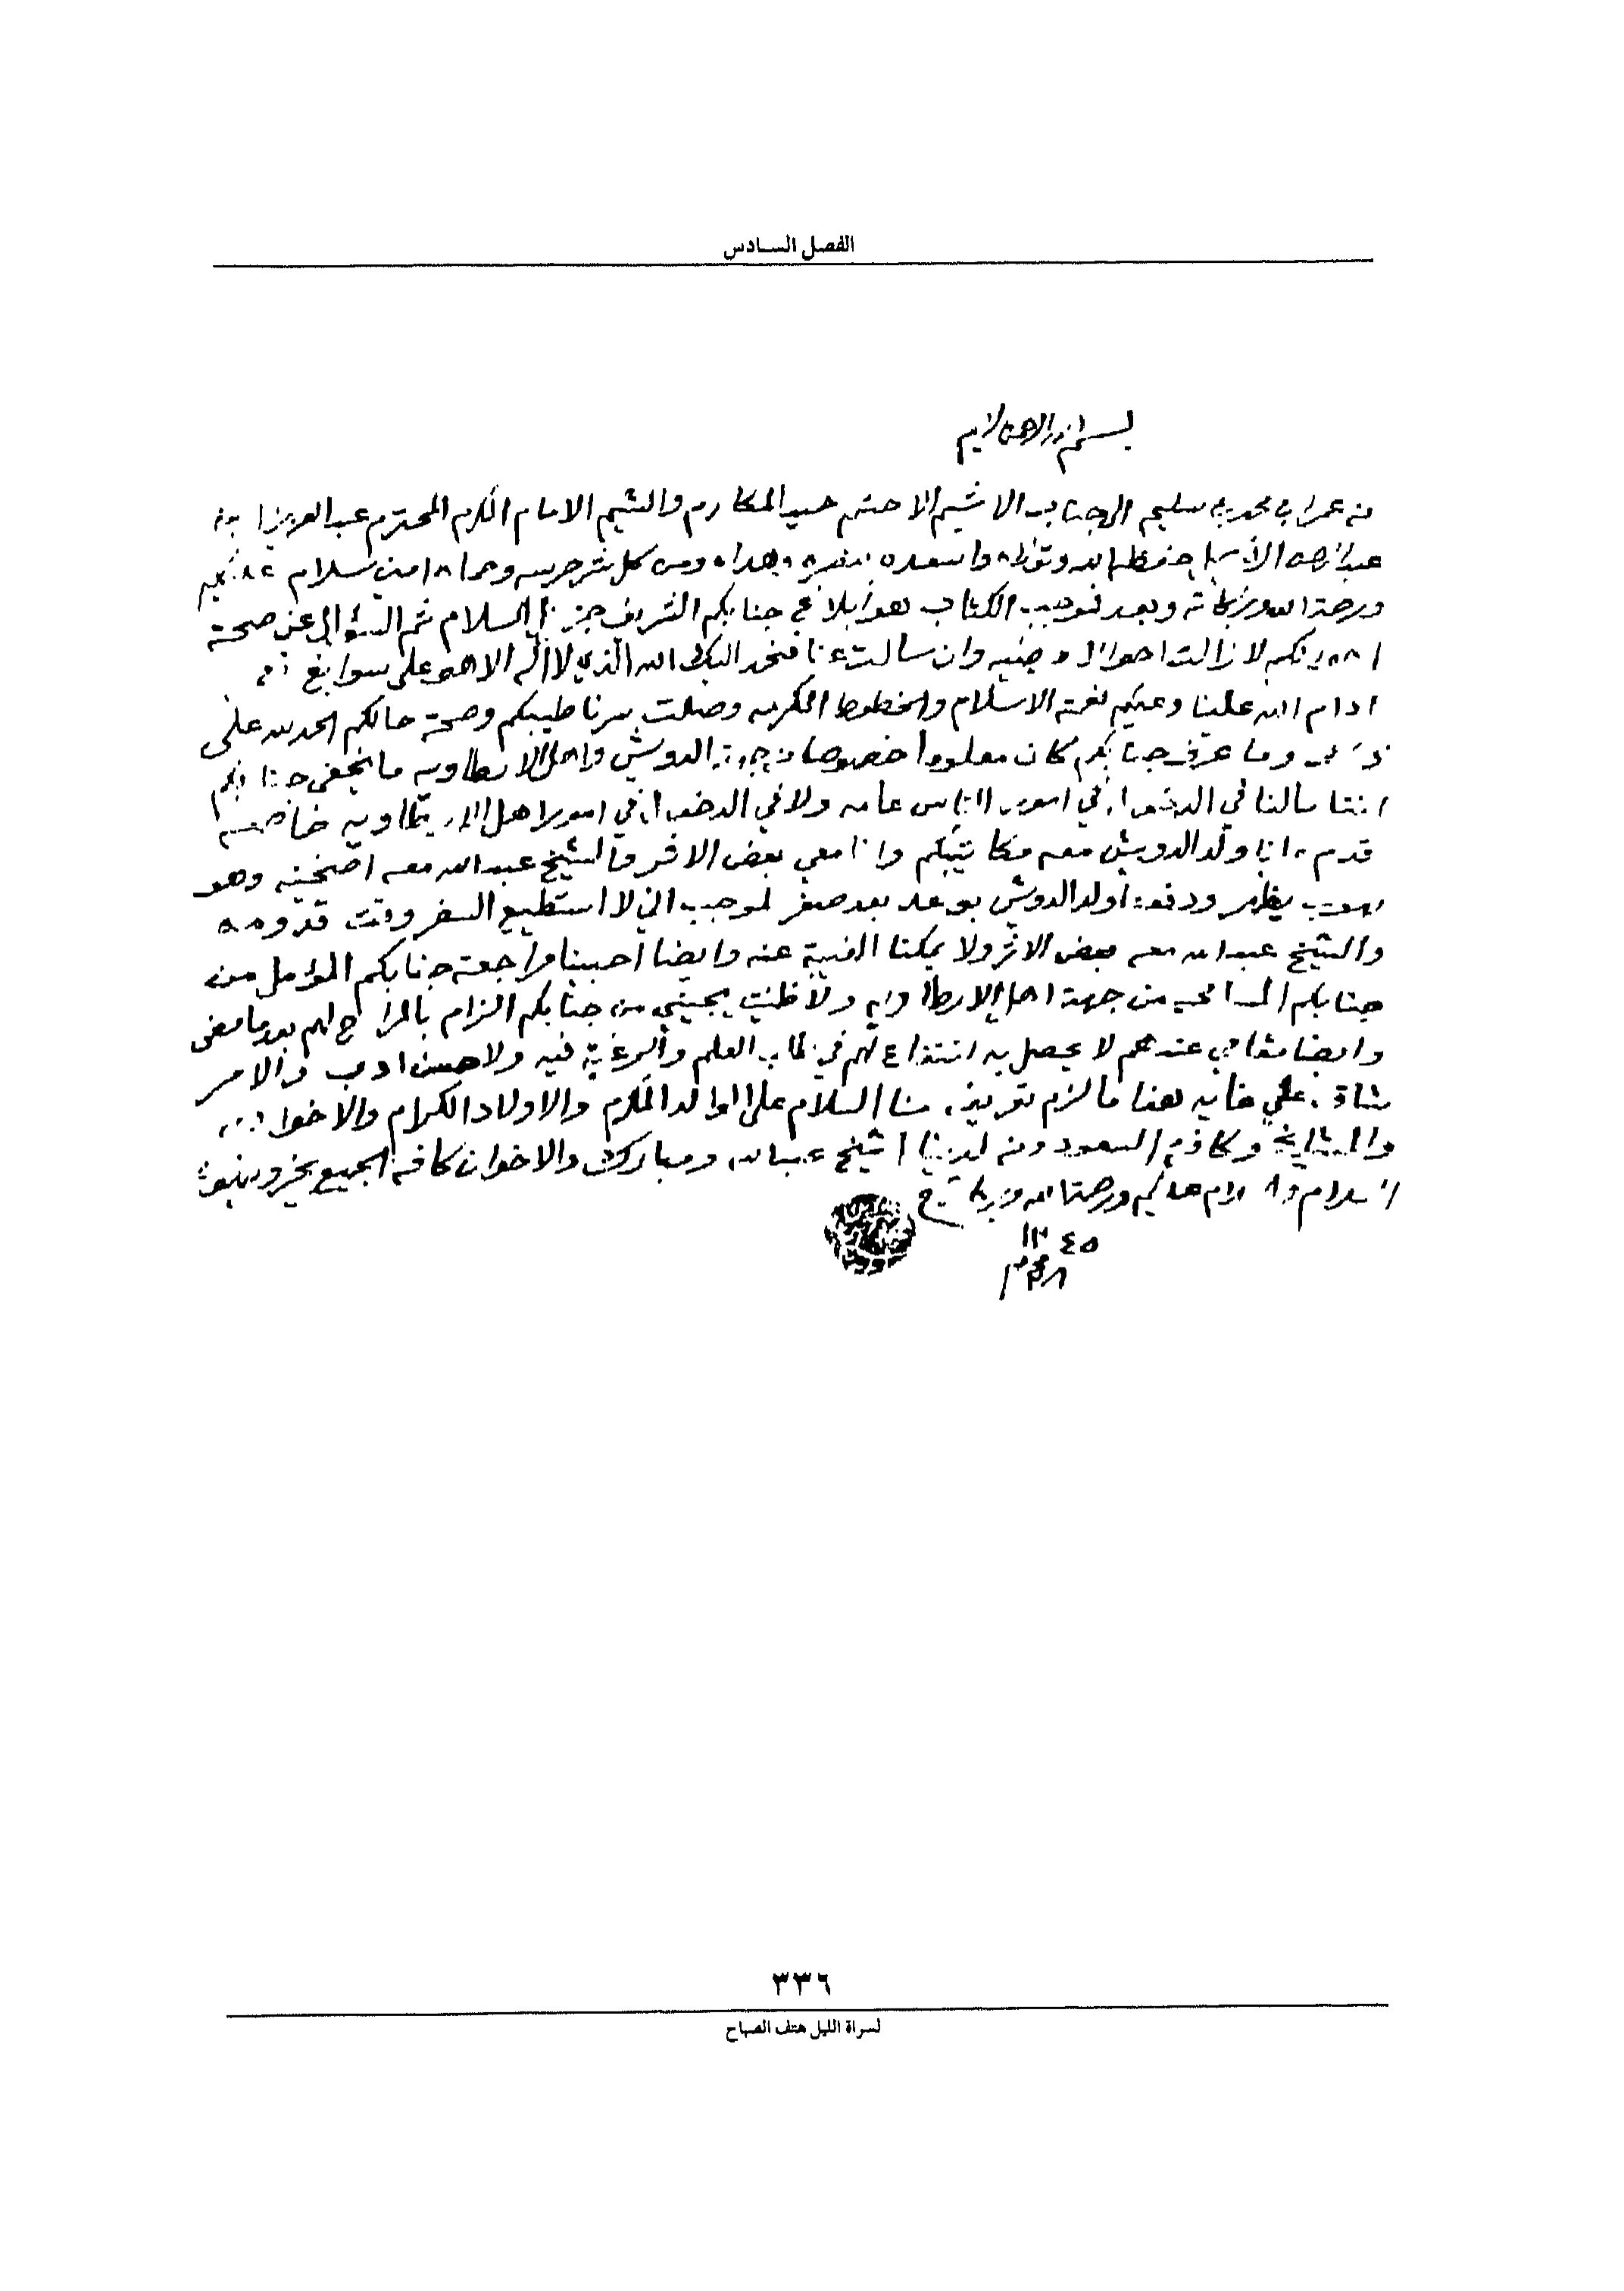 الفصل السادس
بسم الله الرحمن الرحيم
من عمر ابن محمد بن سليم الى جناب الاشيم الاحشم حميد المكارم والشيم الامام المكرم المحترم عبدالعزيز ابن
عبدالرحمن الفيصل حفظه الله وتولاه واسعده بنصره وهداه ومن كل شر حرسه وحماه امين سلام عليكم
ورحمة الله وبركاته وبعد فموجب الكتاب هو ابلاغ جنابكم الشريف جزيل السلام ثم السؤال عن صحة
لا زالت احوال وان سالت عنا فنحمد اليك الله الذي لا اله الا هو على سوابغ
ادام الله علينا وعليكم نعمة الاسلام والخطوط المكرمه وصلت سرنا طيبكم وصحة حالكم الحمد لله على
ذلك وما عرف جنابكم كان معلوما خصوصا من جهة الدويش واهل الارطاويه ما يخفى جنابكم
اننا مالنا في الدخول في امور الناس عامه ولا في الدخول في امور اهل الارطاويه خاصه
قدم ولد الدويش معه مكاتيبكم وانا معي بعض الاثر والشيخ عبدالله معه وهو
يظهر ولد الدويش بوعد بعد صفر لموجب اني لا استطيع السفر وقت قدومه
والشيخ عبدالله معه بعض الاثر ولا يمكنا الغيبة عنه وايضا احببنا مراجعة جنابكم المؤمل من
جنابكم من جهة اهل الارطاويه ولا ظنيت يجيني من جنابكم الزام بالمراح لهم بعد ما مضى
وايضا مقامي عندهم لا يحصل به انتفاع لهم في طلب العلم والرغبة فيه ولا حسن ادب والامر
شاق علي هذا ما لزم تعريفه منا السلام على الوالد المكرم والاولاد الكرام والاخوان
والمشايخ وكافة السعود ومن لدينا الشيخ عبدالله ومبارك والاخوان كافه الجميع بخير وينهون
السلام والسلام عليكم ورحمة الله وبركاته
١٣٤٥
محرم
٣٣٦
لسراة الليل هتف الصباح